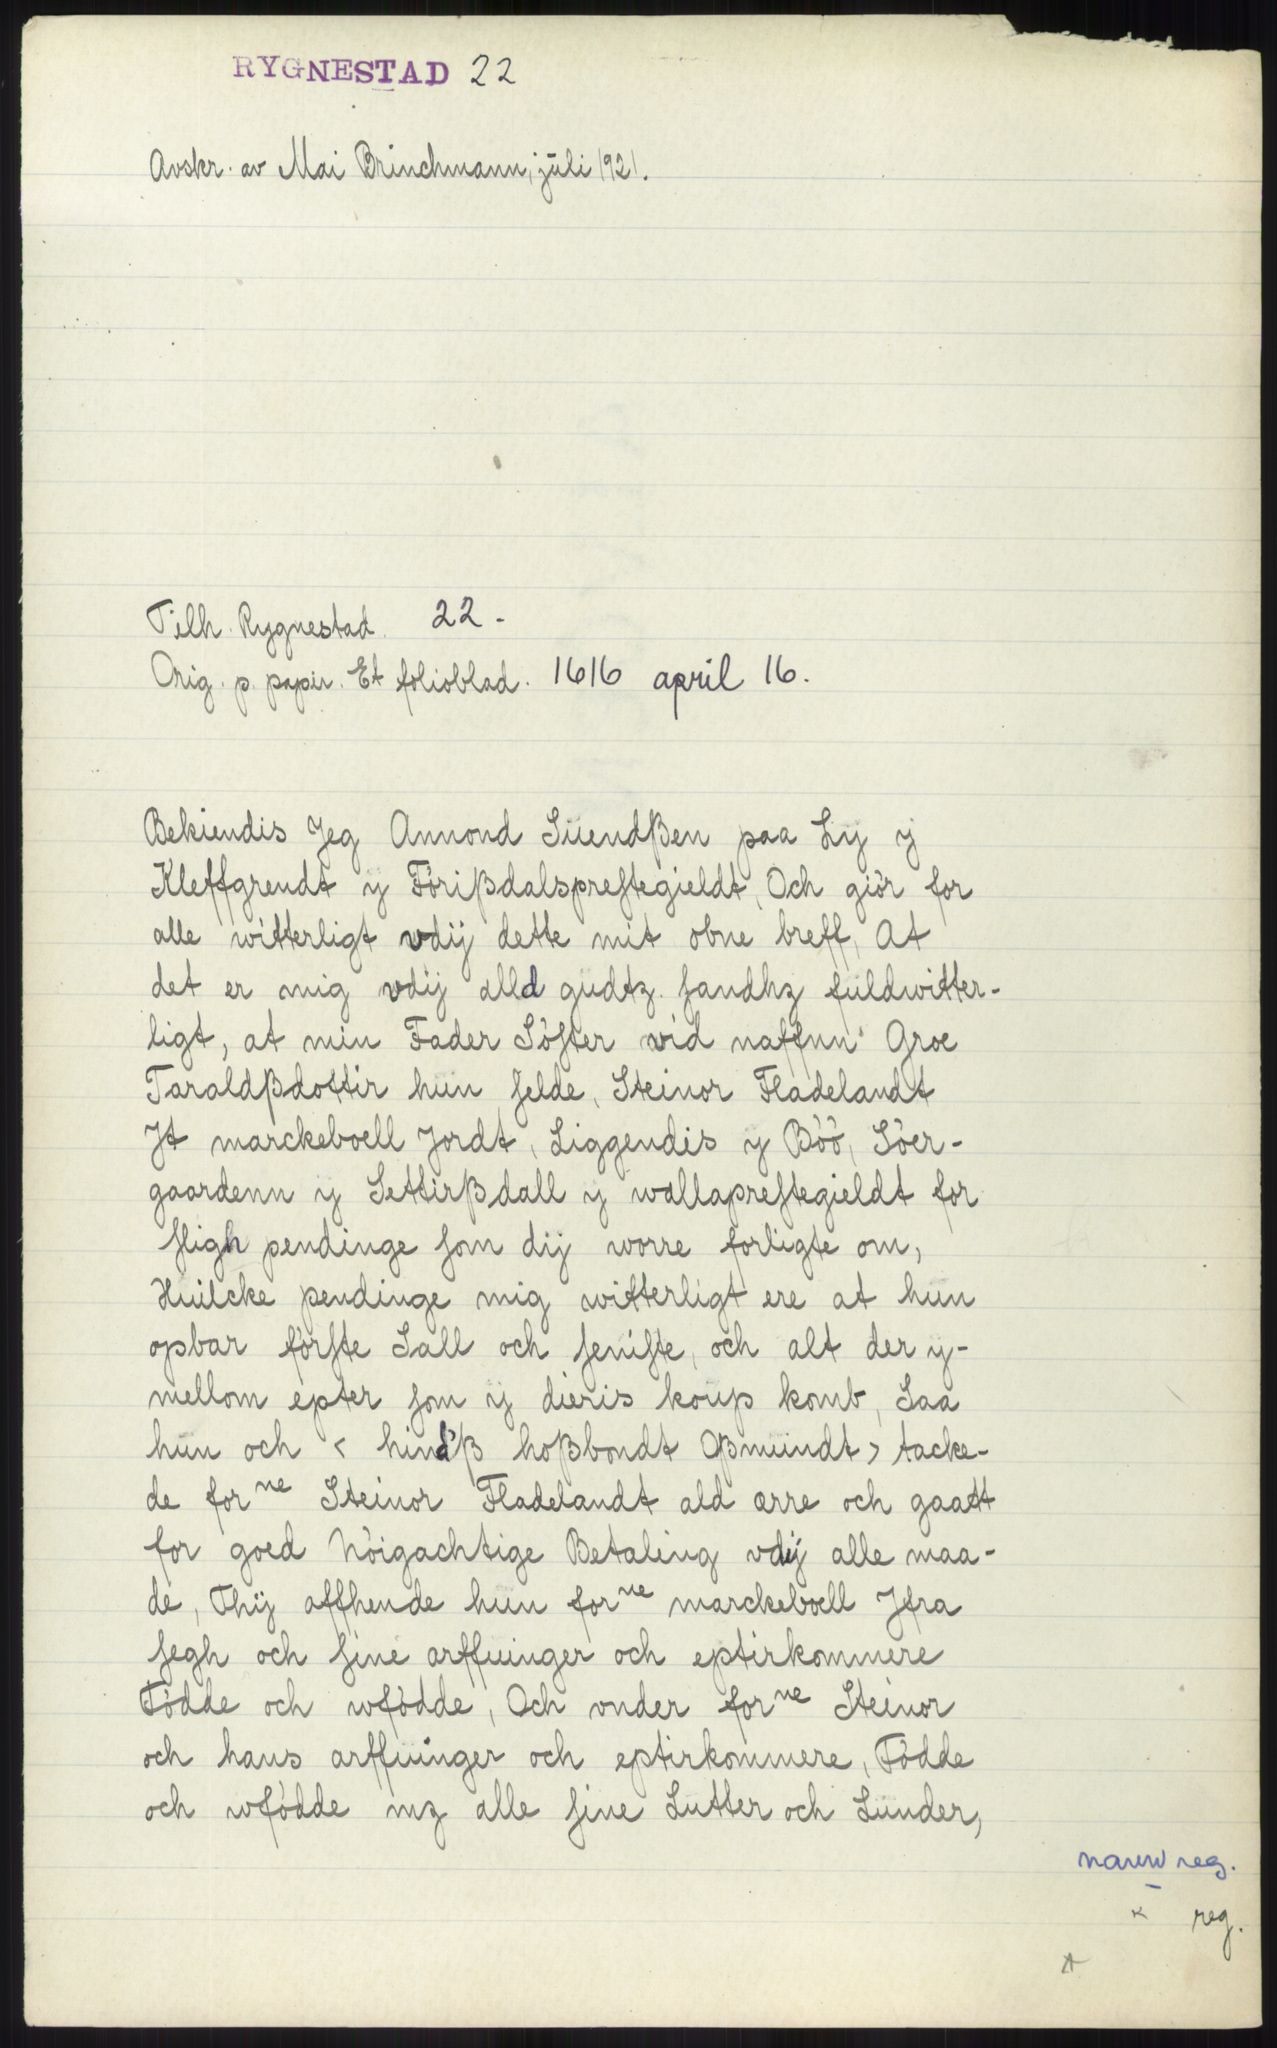 RYGNESTAD 22
Avskr. av Mai Brinchmann, juli 1921.
Tilh. Rygnestad. 22.
Orig. p. papir. Et folioblad. 1616 april 16.
Bekiendis Jeg Anmond Suendßen paa Ly y
Kleffgrendt y Förißdalspreſtegieldt, Och giör for
alle witterligt vdij dette mit obne breff, At
det er mig vdij alld gudtz ſandhz fuldwitter-
ligt, at min Fader Söſter vid naffnn Groe
Taraldßdottir hun ſelde, Steinor Fladelandt
Jt marckeboell Jordt, Liggendis y Böö, Söer-
gaardenn y Settirßdall y wallapreſtegieldt for
ſligh pendinge ſom dij worre forligte om,
Huilcke pendinge mig witterligt ere at hun
opbar förſte Sall och ſeniſte, och alt der y-
mellom epter ſom ij dieris koup komb, Saa
hun och < hindß hoßbondt Oßmundt > tacke-
de forne Steinor Fladelandt ald ærre och gaatt
for goed Nöigachtige Betaling vdij alle maa-
de, Thij affhende hun forne marckeboell Jfra
ſegh och ſine arffuinger och eptirkommere
Födde och wfödde, Och vnder forne Steinor
och hans arffuinger och eptirkommere, Födde
och wfödde mz alle ſine Lutter och Lunder,
navnreg.
reg.